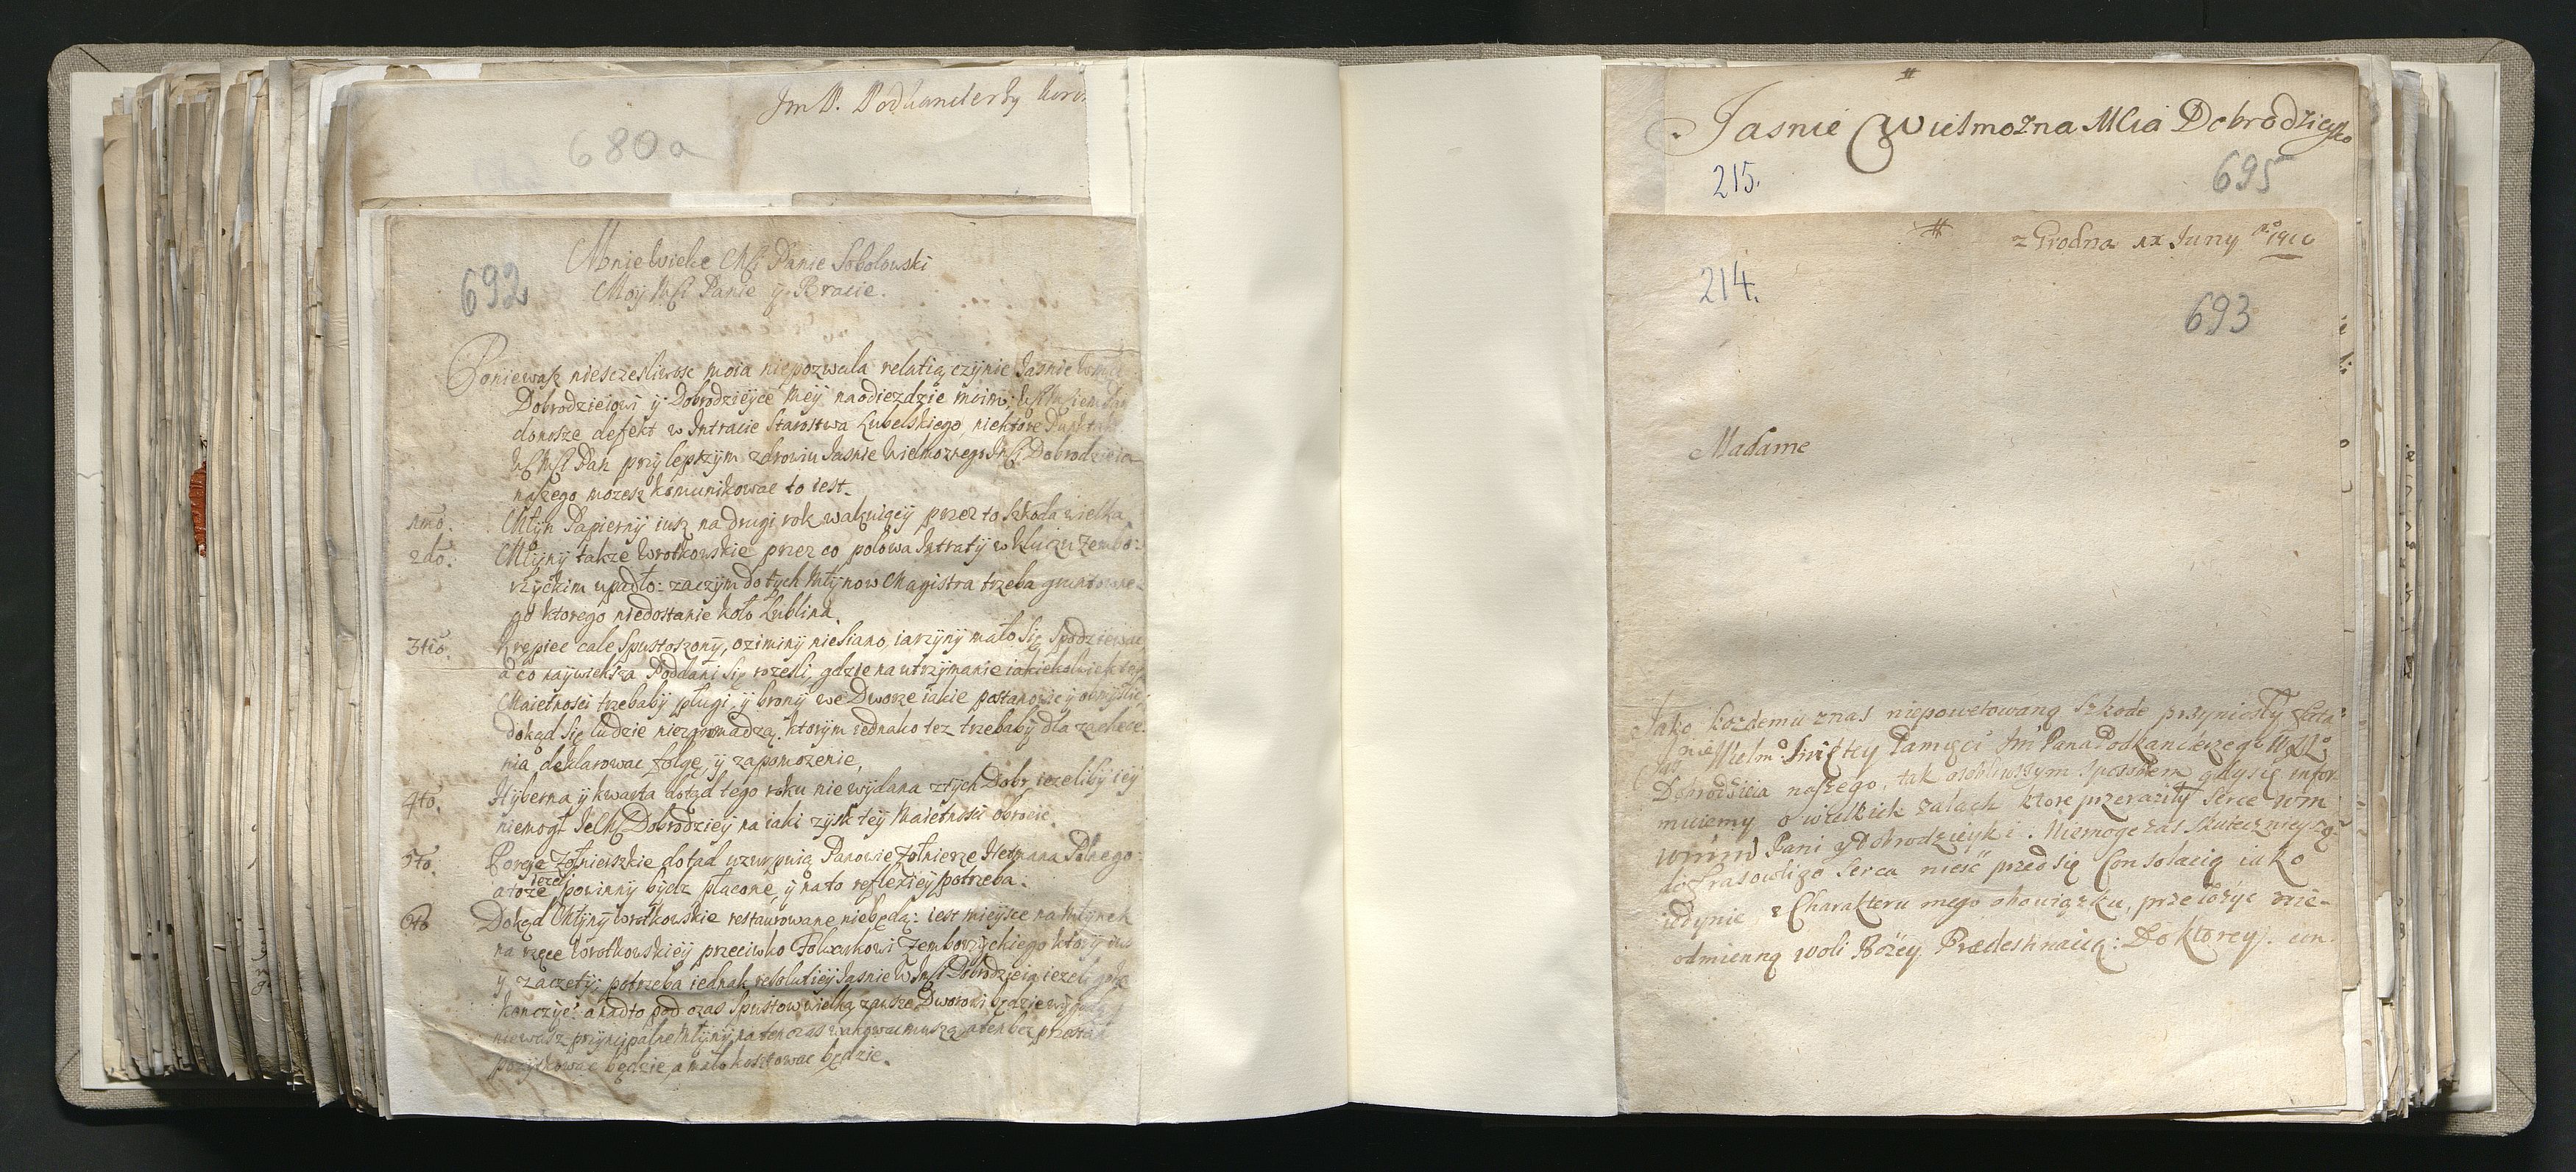 Jm P. Podkanclerzy koron
680a
692
Mnie Wielce Mſci Panie Sobolowski
Moy Mſci Panie ÿ Bracie.
Poniewaſz niesczesliwosc moia niepozwala relatią czÿnic Jasnie
Dobrodzieiowi ÿ Dobrodzieÿce meÿ naodiezdzie moim,
donosze defekt w Intracie Starostwa Lubelskiego, niektore
Pan przÿ lepszÿm zdrowiu Jasnie Wielmoznego Dobrodzieia
naſzego mozesz komunikowac to iest.
1mo. Młÿn Papiernÿ iusz na drugi rok wakuięcÿ przez to szkoda wielka
2do. Młÿnÿ takze Wrotkowskie przez co połowa Intratÿ w kluczu Zembo-
rzÿckim upadło: zaczÿm do tÿch Młÿnow Magistra trzeba gruntowne-
go ktorego niedostanie koło Lublina.
3tio. Krępiec cale spustoszonÿ, oziminÿ niesiano iarzÿnÿ mało się spodziewac
a co naÿwieksza Poddani się rozesli, gdzie na utrzÿmanie iakiekolwiek teÿ
Maietnosci trzebabÿ pługi, ÿ bronÿ we Dworze iakie postanowic ÿ obmÿslic,
dokąd się ludzie niezgromadzą. ktorÿm iednako tez trzebabÿ dla zachęce-
nia deklarowac folgę, ÿ zapomozenie,
4to. Hÿberna ÿ kwarta dotąd tego roku nie wÿdana z tÿch Dobr iezelibÿ ieÿ
niemogł Dobrodzieÿ na iaki zÿsk teÿ Maietnosci obrocic.
5to. Porcje Zołnierskie dotąd uzurpuią Panowie Zołnierze Hetmana Polnego
atoze iezeli powinnÿ bÿdz płacone, ÿ na to reflexieÿ potrzeba.
6to Dokąd Młÿnÿ Wrotkowskie restaurowane niebędą: iest mieÿsce na Młÿnek
na rzece Wrotkowskieÿ przeciwko Folwarkowi Zemborzÿckiego ktorÿ ius
ÿ zaczętÿ; potrzeba iednak resolutieÿ Jasnie W Dobrodzieia iezeli go
konczÿc: a nadto pod czas spustow wielką zawsze Dworowi będzie wÿgodą
niewasz prÿncÿpalne Młÿnÿ na ten czas wakowac muszą, a ten bez przestan
pozÿskowac będzie, a mało kosztowac będzie.
#
Jasnie Wielmozna Mcia Dobrodzieyko
215.
695
#
z Grodna IX Juny
214.
693
Madame
Jako kozdemu znas niepowetowaną szkode przyniosły fata
Jasnie Wielm: Swiętey Pamięci Jm Pana Podkanclerzego
Dobrodzieia naszego, tak osobliwszym sposobem gdysię infor
muiemy o wielkich zalach ktore przeraziły serce wm
Pani y Dobrodzieyki. Niemoge zas skuteczniey
do frasowligo serca nieść przed się Consolacią iako
iedynie, z Charakteru mego obowiązku, przełożyc nie-
odmienną woli Bożey Prædestinaicią: Do ktorey